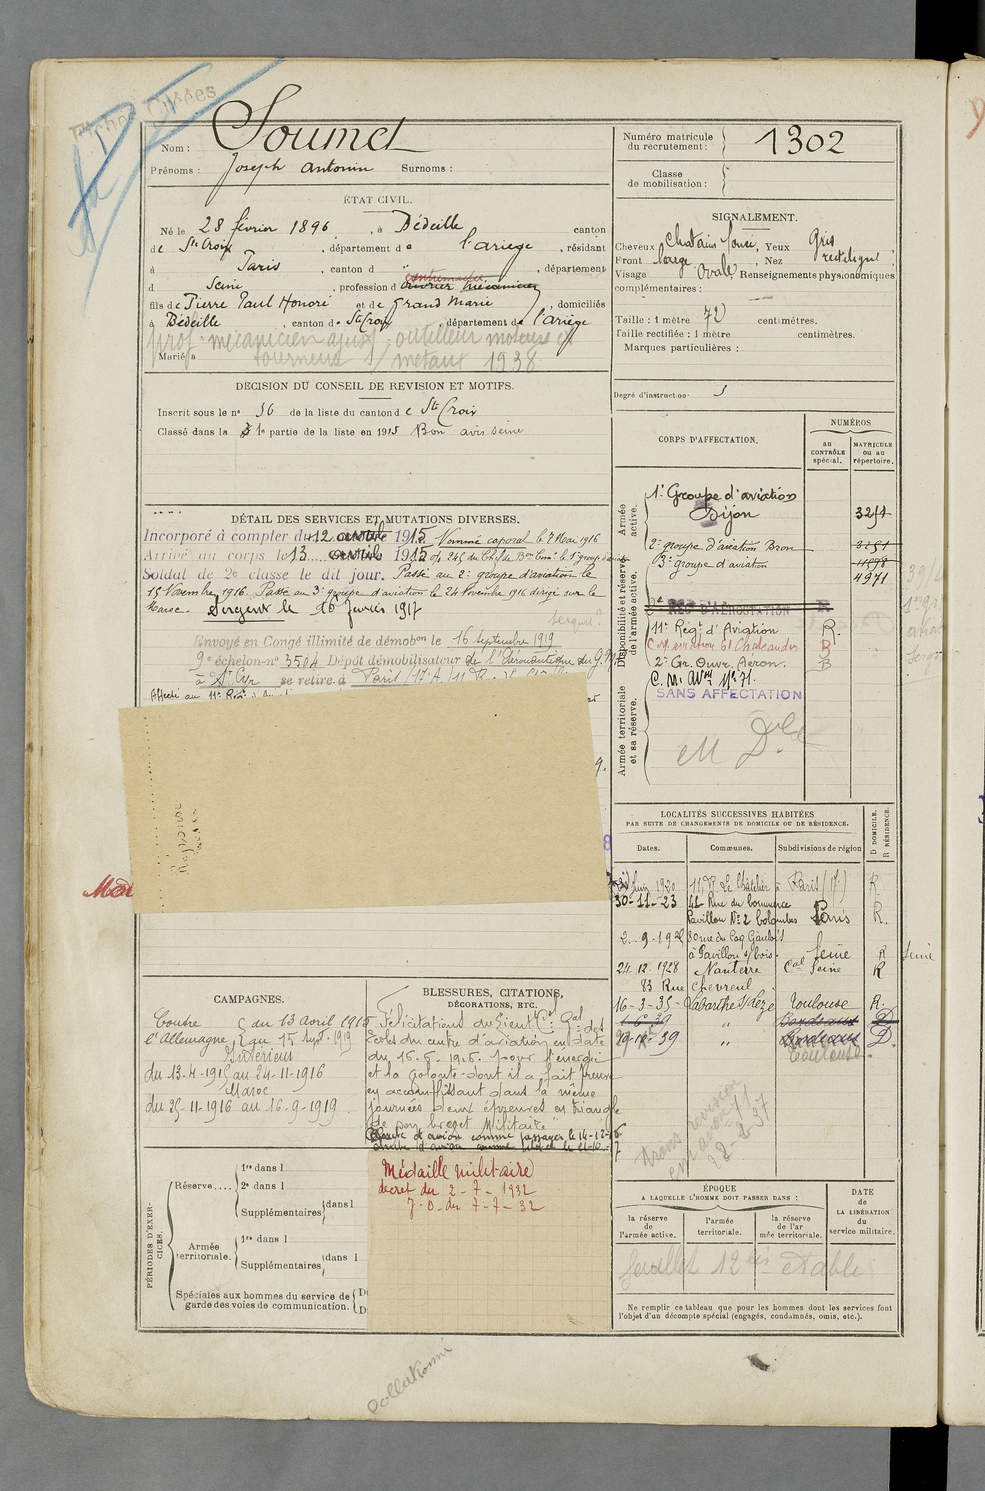 Fiches Créées
Nom : Soumet
Prénoms : Joseph Antonin Surnoms :
Numéro matricule du recrutement : 1302
Classe de mobilisation :
ÉTAT CIVIL.
Né le 28 février 1896, à Bédeille canton
de Ste Croix, département de l'Ariège, résidant
à Paris, canton d ", département
d Seine, profession d ouvrier mécanicien
contremaître
fils de Pierre Paul Honoré et de Grand Marie, domiciliés
à Bédeille, canton de Ste Croix, département de l'Ariège
prof. mécanicien ajust outilleur moteurs
Marié à
tourneur s/ métaux 1938
SIGNALEMENT.
Cheveux Chatain foncé, Yeux Gris
Front large, Nez rectiligne
Visage Ovale Renseignements physionomiques
complémentaires :
Taille : 1 mètre 72 centimètres.
Taille rectifiée : 1 mètre centimètres.
Marques particulières :
Degré d'instruction
DECISION DU CONSEIL DE REVISION ET MOTIFS.
Inscrit sous le n° 16 de la liste du canton de Ste Croix
Classé dans la 1e partie de la liste en 1915 Bon avis Seine
DÉTAIL DES SERVICES ET MUTATIONS DIVERSES.
Incorporé à compter du 12 avril 1915. Nommé caporal le 7 Mai 1916
Arrivé au corps le 13 avril 1915
Soldat de 2e classe le dit jour. Passé au 2e groupe d'aviation le
15 Novembre 1916. Passé au 3e groupe d'aviation le 24 Novembre 1916 dirigé sur le
Maroc. Sergent le 16 Janvier 1917
Envoyé en Congé illimité de démobon le 16 septembre 1919
9e échelon-n° 3504 Dépôt démobilisateur de l'Aéronautique du G.M.P.
à St Cyr se retire à Paris
Affecté au 11e Rég
CORPS D'AFFECTATION.
NUMÉROS
au CONTRÔLE spécial.
MATRICULE ou au répertoire.
Armée active.
1e Groupe d'aviation
Dijon 3251
2e groupe d'aviation Bron 3251
3e groupe d'aviation 11598
4971
Disponibilité et réserve de l'armée active.
RÉGt D'AÉROSTATION R
11e Régt d'Aviation R.
C.M. aviation 61 Chateaudun R
2e Gr. Ouvr. Aéron. R
Armée territoriale et sa réserve.
SANS AFFECTATION
LOCALITÉS SUCCESSIVES HABITÉES
PAR SUITE DE CHANGEMENTS DE DOMICILE OU DE RÉSIDENCE.
Dates. Communes. Subdivisions de région D DOMICILE. R RÉSIDENCE.
Juin 1920 11, R. Le Châtelier à Paris (17) R
30-11-23 41 Rue du Commerce
Pavillon N° 2 Colombes Paris R.
2-9-19 80 rue du Coq Gaulois
à Pavillons s/ bois. Seine R
24-12-1928 Nanterre Cal Seine R
83 Rue Chevreul
16-3-35 Labarthe s/ Lèze Toulouse R.
" Bordeaux D
39 " Bordeaux D.
Toulouse
CAMPAGNES.
Contre du 13 avril 1915
l'Allemagne au 15 Sept. 1919
Intérieur
du 13-4-1915 au 24-11-1916
Maroc
du 25-11-1916 au 16-9-1919.
BLESSURES, CITATIONS,
DÉCORATIONS, ETC.
Félicitations du Lieut Cel Gal des
Ecoles du centre d'aviation en date
du 16-6-1916. pour l'énergie
et la volonté dont il a fait preuve
en accomplissant dans la même
journées deux épreuves en triangle
de son brevet Militaire"
Médaille militaire
décret du 2-7-1932
J.O. du 7-7-32
PÉRIODES D'EXERCICES.
Réserve....
1re dans l
2e dans l
Supplémentaires dans l
Armée territoriale.
1re dans l
Supplémentaires dans l
Spéciales aux hommes du service de
garde des voies de communication.
ÉPOQUE
A LAQUELLE L'HOMME DOIT PASSER DANS :
la réserve de l'armée active.
l'armée territoriale.
la réserve de l'armée territoriale.
DATE
de
LA LIBÉRATION
du
service militaire.
feuillet 12 bis établi
Ne remplir ce tableau que pour les hommes dont les services font
l'objet d'un décompte spécial (engagés, condamnés, omis, etc.).
Collationné